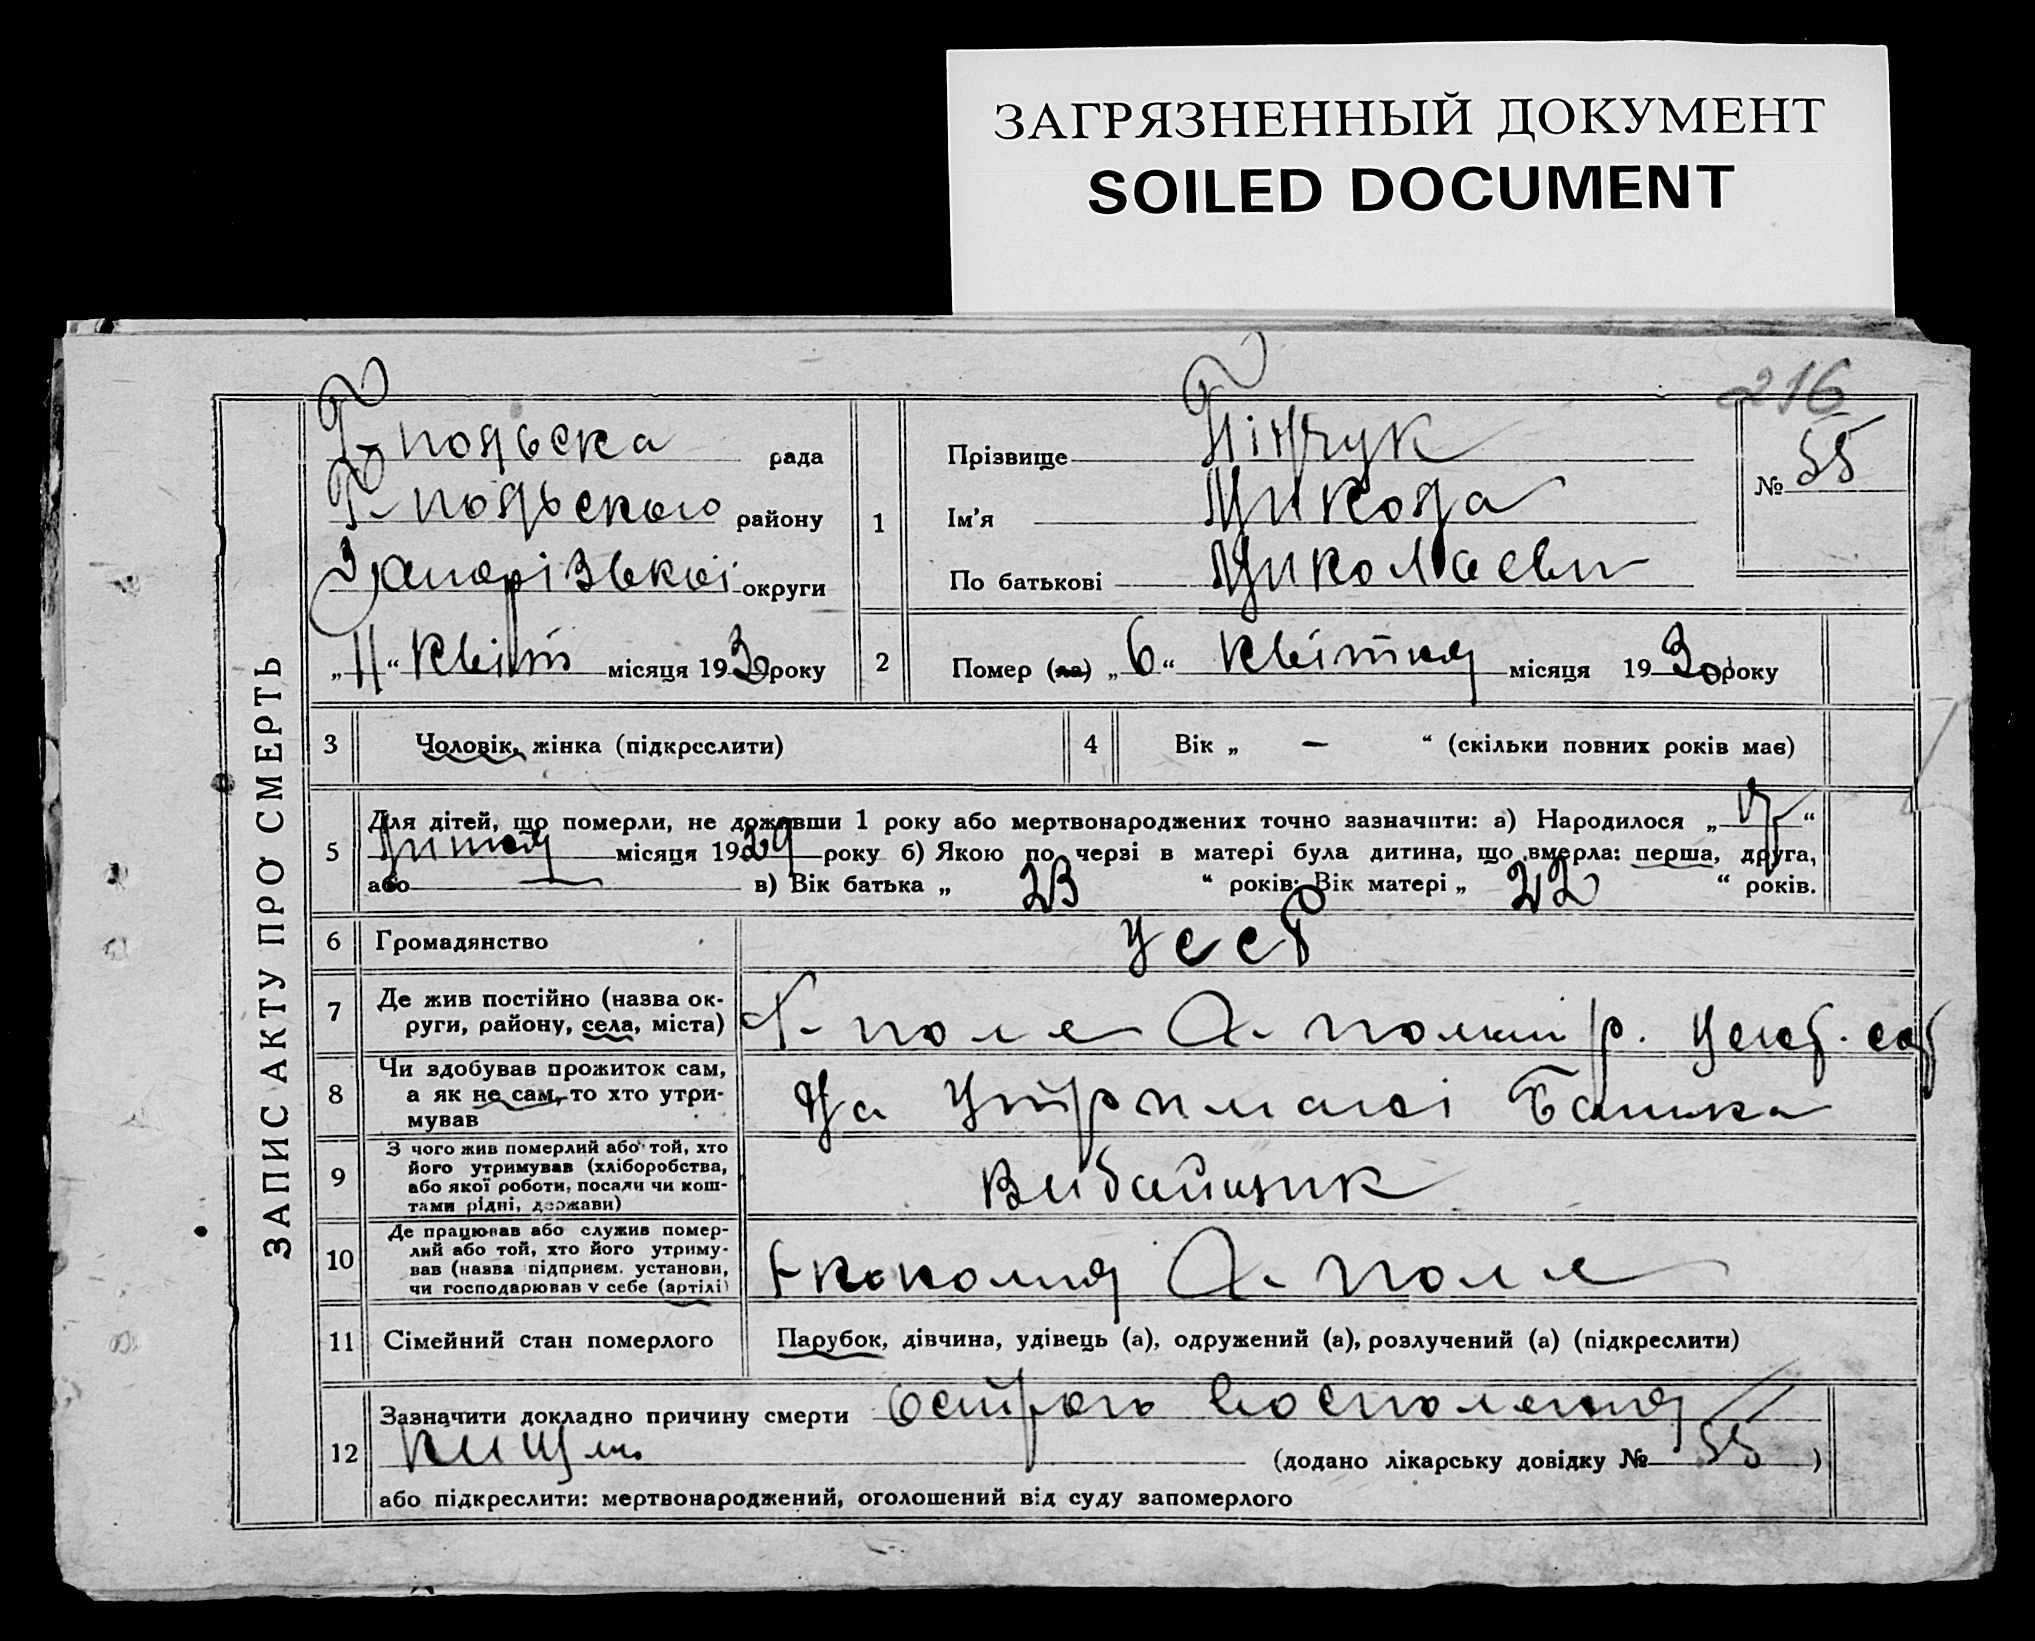 ЗАГРЯЗНЕННЫЙ ДОКУМЕНТ
SOILED DOCUMENT
216
ЗАПИС АКТУ ПРО СМЕРТЬ
Г-польска рада
Г-польского району
Запорізької округи
„11“ квіт місяця 1930 року
1
Прізвище Пінчук
Ім'я Микола
По батькові Миколаєвич
№ 55
2 Помер (ла) „6“ квітня місяця 1930 року
3 Чоловік, жінка (підкреслити)
4 Вік „ — “ (скільки повних років має)
5 Для дітей, що померли, не доживши 1 року або мертвонароджених точно зазначити: а) Народилося „ “
місяця 1929 року б) Якою по черзі в матері була дитина, що вмерла: перша, друга,
або — в) Вік батька „ 23 “ років; Вік матері „ 22 “ років.
6 Громадянство УССР
7 Де жив постійно (назва ок-
руги, району, села, міста)
Г-поле Г-польск р.
8 Чи здобував прожиток сам,
а як не сам, то хто утри-
мував
На утриманні батька
9 З чого жив померлий або той, хто
його утримував (хліборобства,
або якої роботи, посади чи кош-
тами рідні, держави)
10 Де працював або служив помер-
лий або той, хто його утриму-
вав (назва підприєм. установи,
чи господарював у себе (артілі)
Економия Г-поле
11 Сімейний стан померлого Парубок, дівчина, удівець (а), одружений (а), розлучений (а) (підкреслити)
12 Зазначити докладно причину смерти
(додано лікарську довідку № 55)
або підкреслити: мертвонароджений, оголошений від суду запомерлого